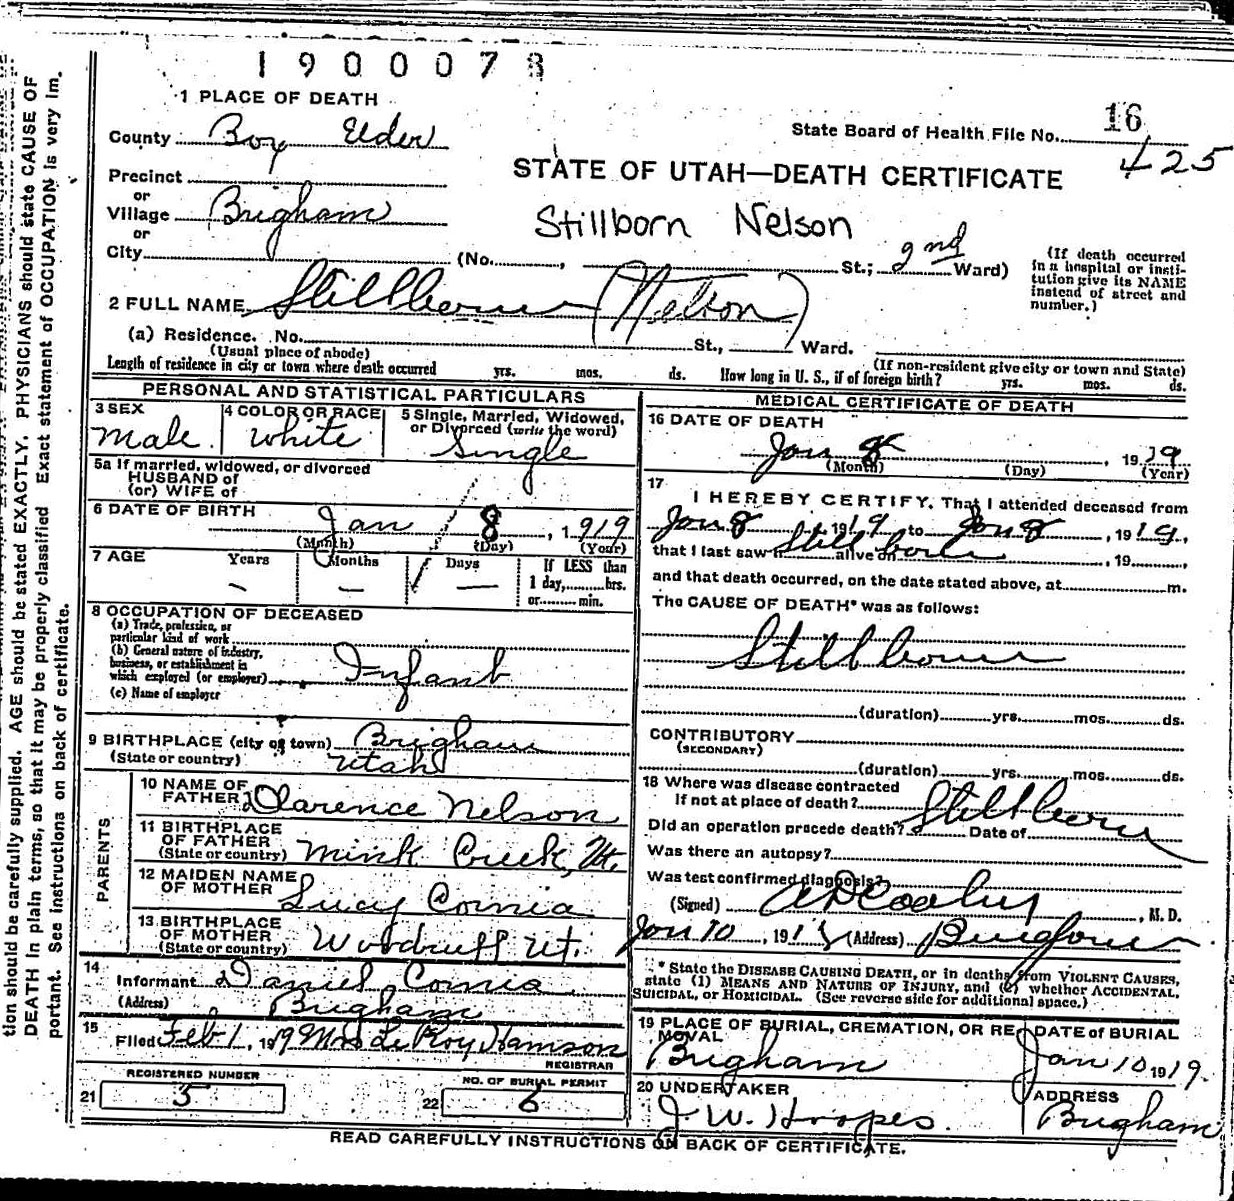 1900078
1 PLACE OF DEATH
State Board of Health File No. 16
425
County Box Elder
STATE OF UTAH—DEATH CERTIFICATE
Precinct
or
Village Brigham
or
Stillborn Nelson
City (No. , St.; 2nd Ward)
(If death occurred in a hospital or insti-
tution give its NAME
instead of street and
number.)
2 FULL NAME Stillborn (Nelson)
(a) Residence. No. St., Ward.
(Usual place of abode)
(If non-resident give city or town and State)
Length of residence in city or town where death occurred yrs. mos. ds. How long in U. S., if of foreign birth? yrs. mos. ds.
PERSONAL AND STATISTICAL PARTICULARS
3 SEX
Male
4 COLOR OR RACE
White
5 Single, Married, Widowed,
or Divorced (write the word)
Single
5a If married, widowed, or divorced
HUSBAND of
(or) WIFE of
6 DATE OF BIRTH
Jan 8, 1919
(Month) (Day) (Year)
7 AGE Years Months Days
If LESS than
1 day, hrs.
or min.
8 OCCUPATION OF DECEASED
(a) Trade, profession, or
particular kind of work
(b) General nature of industry,
business, or establishment in
which employed (or employer) Infant
(c) Name of employer
9 BIRTHPLACE (city or town) Brigham
(State or country) Utah
PARENTS
10 NAME OF
FATHER Clarence Nelson
11 BIRTHPLACE
OF FATHER
(State or country) Mink Creek, Ut.
12 MAIDEN NAME
OF MOTHER Lucy Cornia
13 BIRTHPLACE
OF MOTHER
(State or country) Woodruff Ut.
14
Informant Daniel Cornia
(Address) Brigham
15
Filed Feb 1, 1919 Mrs LeRoy Hamson
REGISTRAR
REGISTERED NUMBER
21 5
NO. OF BURIAL PERMIT
22 6
MEDICAL CERTIFICATE OF DEATH
16 DATE OF DEATH
Jan 8, 1919
(Month) (Day) (Year)
17
I HEREBY CERTIFY, That I attended deceased from
Jan 8, 1919 to Jan 8, 1919,
that I last saw h Stillborn alive on , 19 ,
and that death occurred, on the date stated above, at m.
The CAUSE OF DEATH* was as follows:
Stillborn
(duration) yrs. mos. ds.
CONTRIBUTORY
(SECONDARY)
(duration) yrs. mos. ds.
18 Where was disease contracted
if not at place of death? Stillborn
Did an operation precede death? Date of
Was there an autopsy?
Was test confirmed diagnosis?
(Signed) , M. D.
Jan 10, 191 (Address) Brigham
* State the DISEASE CAUSING DEATH, or in deaths from VIOLENT CAUSES,
state (1) MEANS AND NATURE OF INJURY, and (2) whether ACCIDENTAL,
SUICIDAL, or HOMICIDAL. (See reverse side for additional space.)
19 PLACE OF BURIAL, CREMATION, OR RE-
MOVAL
Brigham
DATE OF BURIAL
Jan 10 1919.
20 UNDERTAKER
J. W. Hoopes.
ADDRESS
Brigham
READ CAREFULLY INSTRUCTIONS ON BACK OF CERTIFICATE.
tion should be carefully supplied. AGE should be stated EXACTLY. PHYSICIANS should state CAUSE OF
DEATH in plain terms, so that it may be properly classified. Exact statement of OCCUPATION is very im-
portant. See instructions on back of certificate.